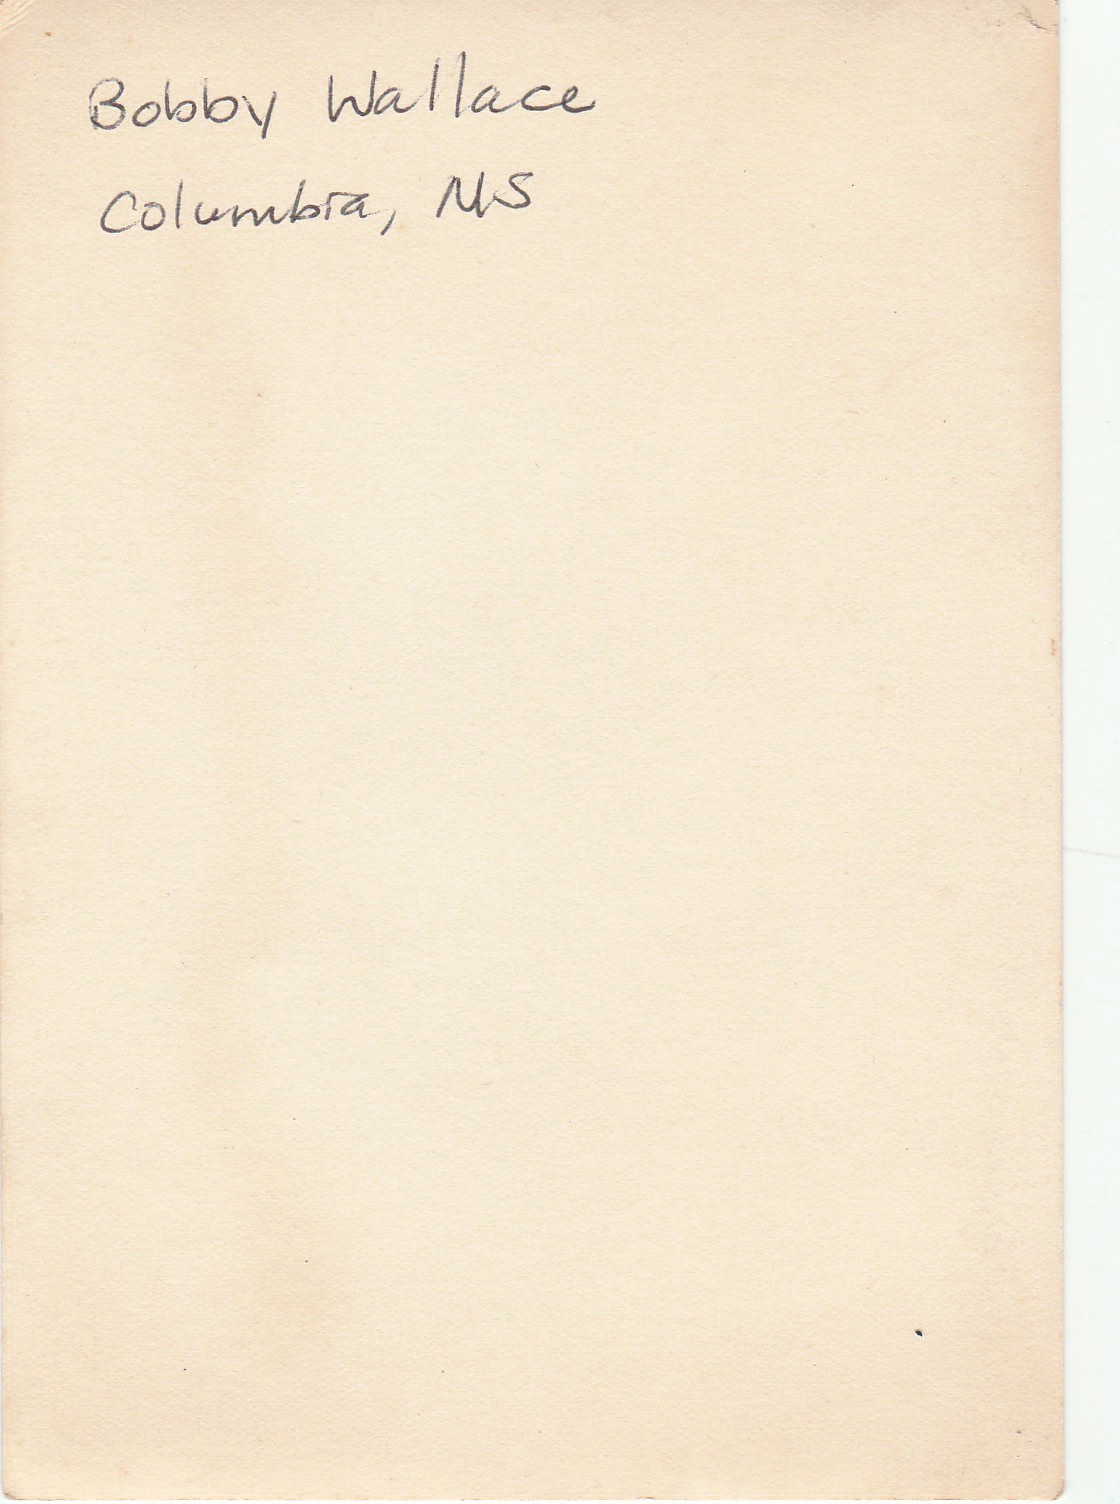 Bobby Wallace
Columbia, MS